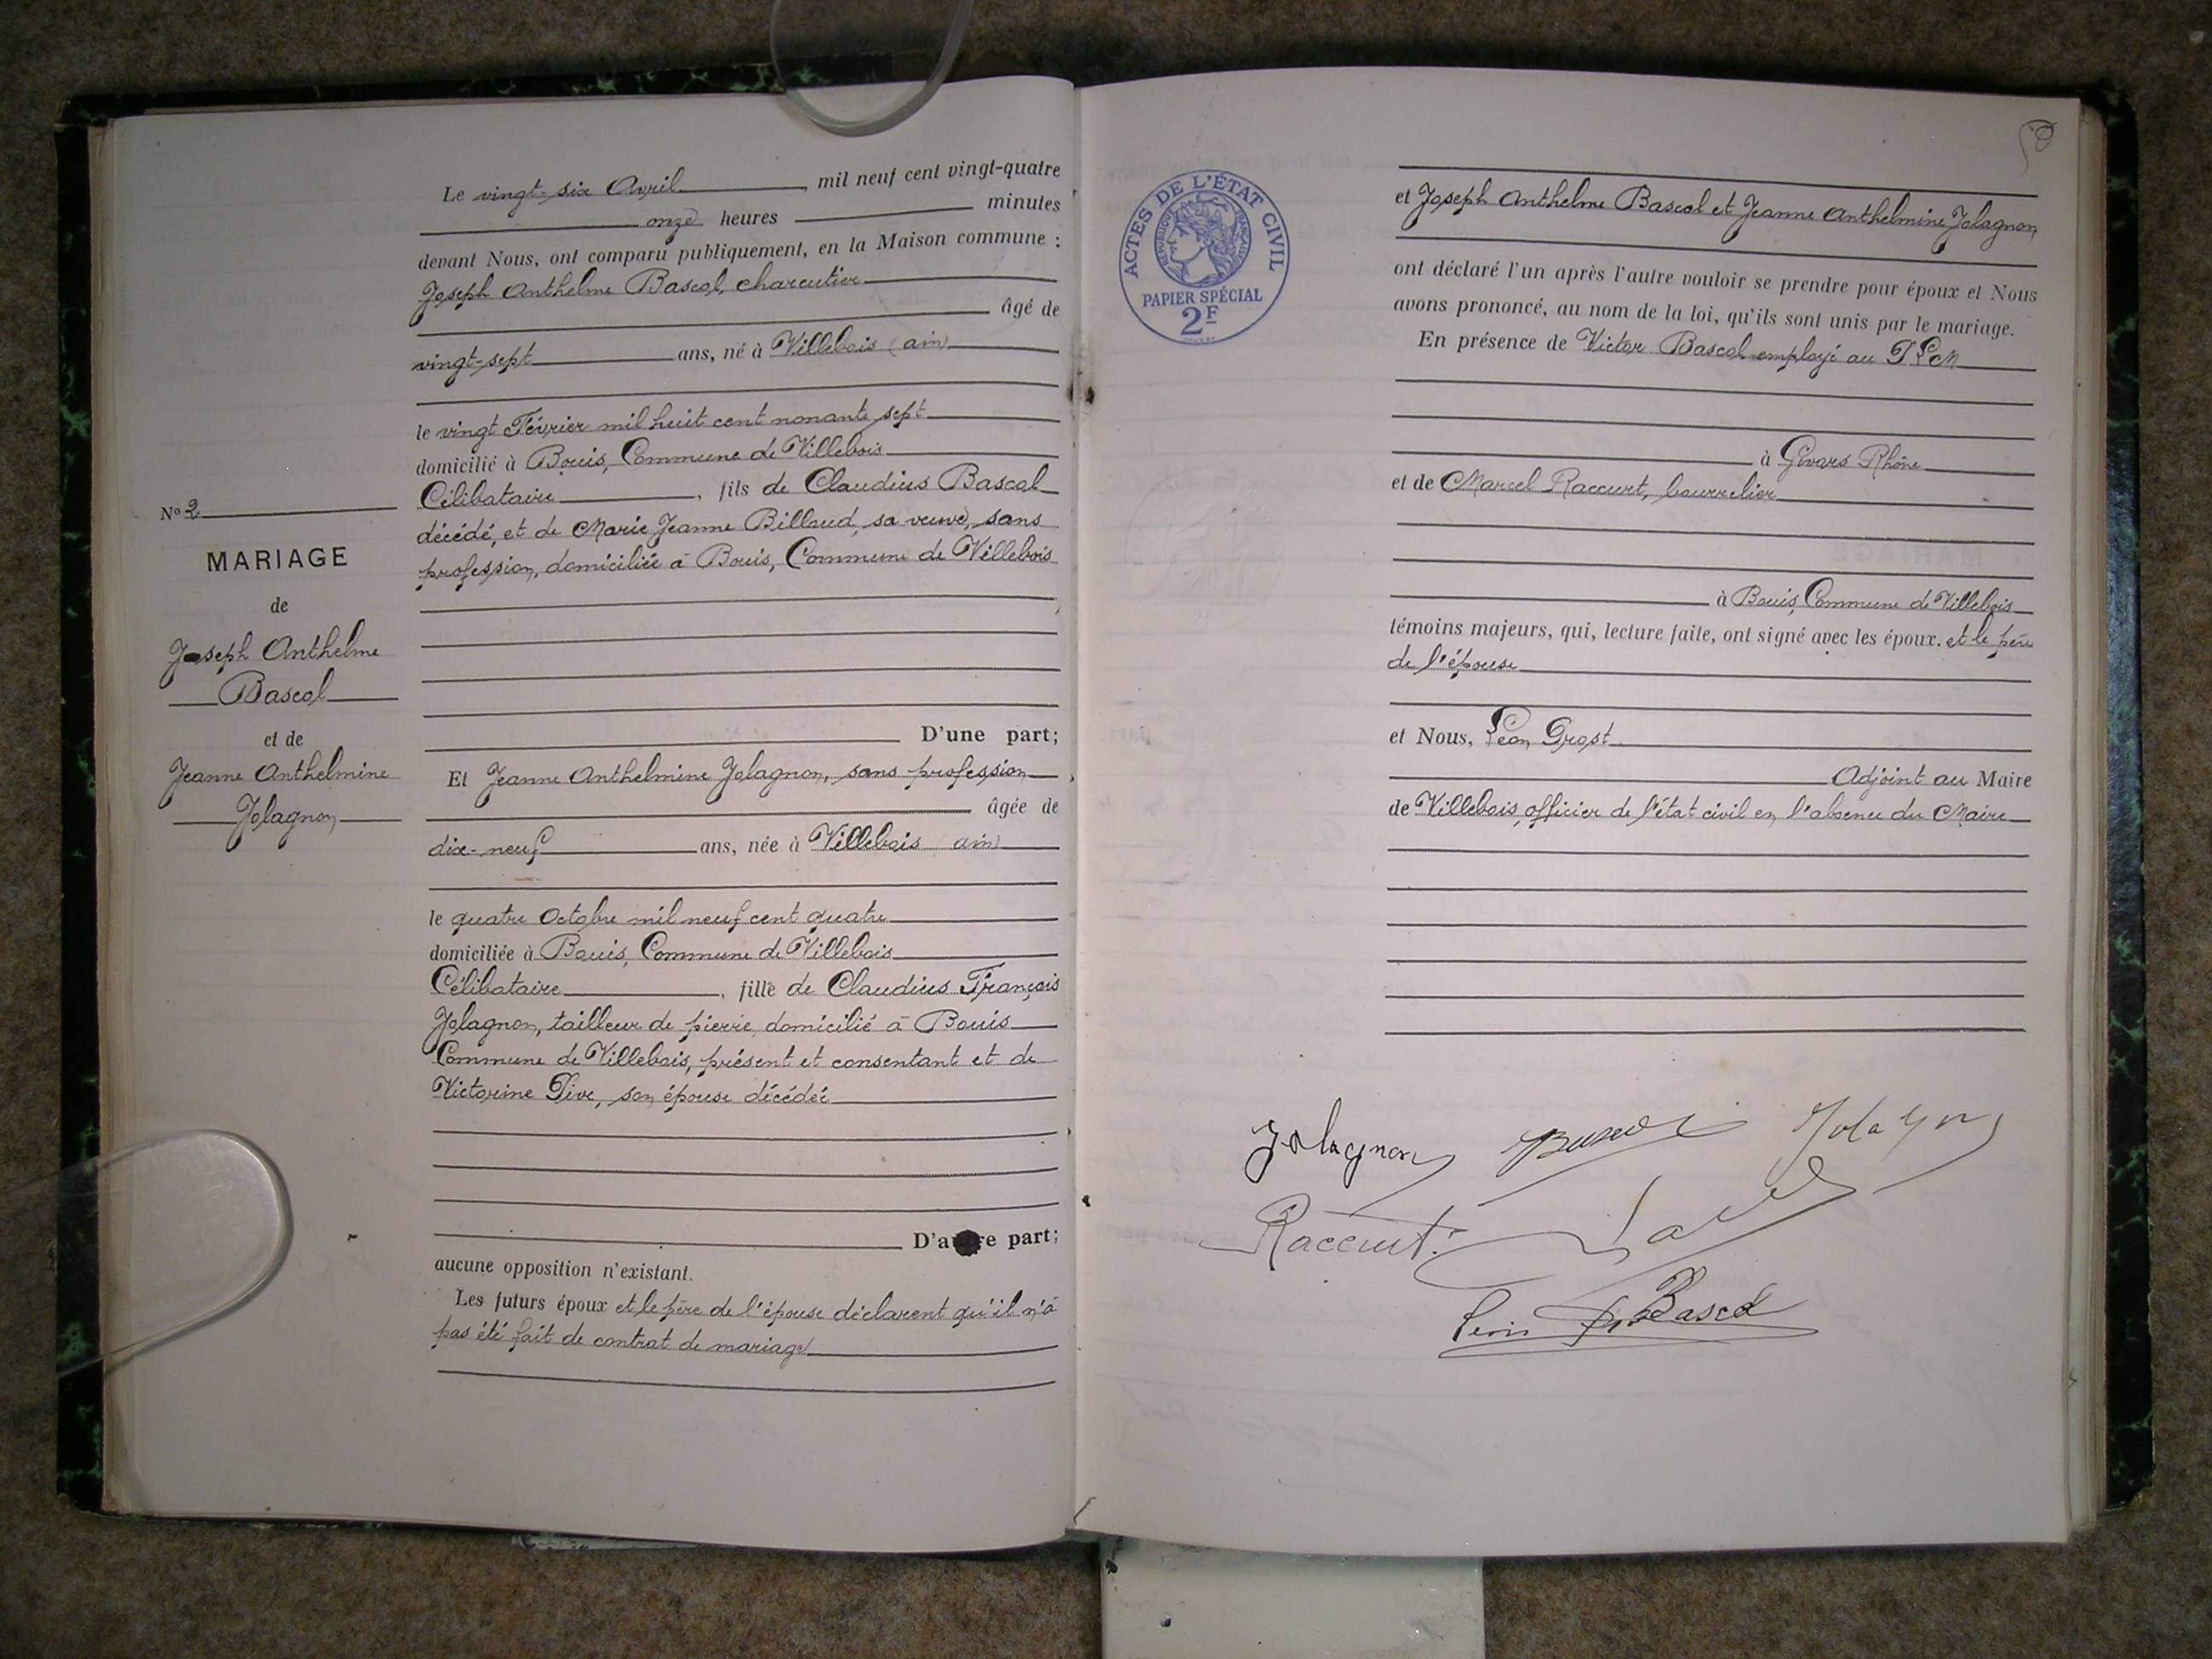 Le vingt-six Avril, mil neuf cent vingt-quatre
onze heures minutes
devant Nous, ont comparu publiquement, en la Maison commune :
Joseph Anthelme Bascol, charcutier
âgé de
vingt-sept ans, né à Villebois (ain)
le vingt Février mil huit cent nonante sept
domicilié à Bouis, Commune de Villebois
Célibataire, fils de Claudius Bascol
décédé, et de Marie Jeanne Billaud, sa veuve, sans
profession, domiciliée à Bouis, Commune de Villebois
No 2
MARIAGE
de
Joseph Anthelme
Bascol
et de
Jeanne Anthelmine
Jolagnon
D'une part;
Et Jeanne Anthelmine Jolagnon, sans profession
âgée de
dix-neuf ans, née à Villebois ain)
le quatre Octobre mil neuf cent quatre
domiciliée à Bouis, Commune de Villebois
Célibataire, fille de Claudius François
Jolagnon, tailleur de pierre domicilié à Bouis
Commune de Villebois, présent et consentant et de
Victorine Pive, son épouse décédée
D'autre part;
aucune opposition n'existant.
Les futurs époux et le père de l'épouse déclarent qu'il n'a
pas été fait de contrat de mariage
50
ACTES DE L'ÉTAT CIVIL
RÉPUBLIQUE FRANÇAISE
PAPIER SPÉCIAL
2F
et Joseph Anthelme Bascol et Jeanne Anthelmine Jolagnon
ont déclaré l'un après l'autre vouloir se prendre pour époux et Nous
avons prononcé, au nom de la loi, qu'ils sont unis par le mariage.
En présence de Victor Bascol employé au P.L.M
à Givors Rhône
et de Marcel Raccurt, bourrelier
à Bouis, Commune de Villebois
témoins majeurs, qui, lecture faite, ont signé avec les époux. et le père
de l'épouse
et Nous, Léon Grost
Adjoint au Maire
de Villebois officier de l'état civil en l'absence du Maire
Jolagnon Bascol Jolagnon
Raccurt
Bascol